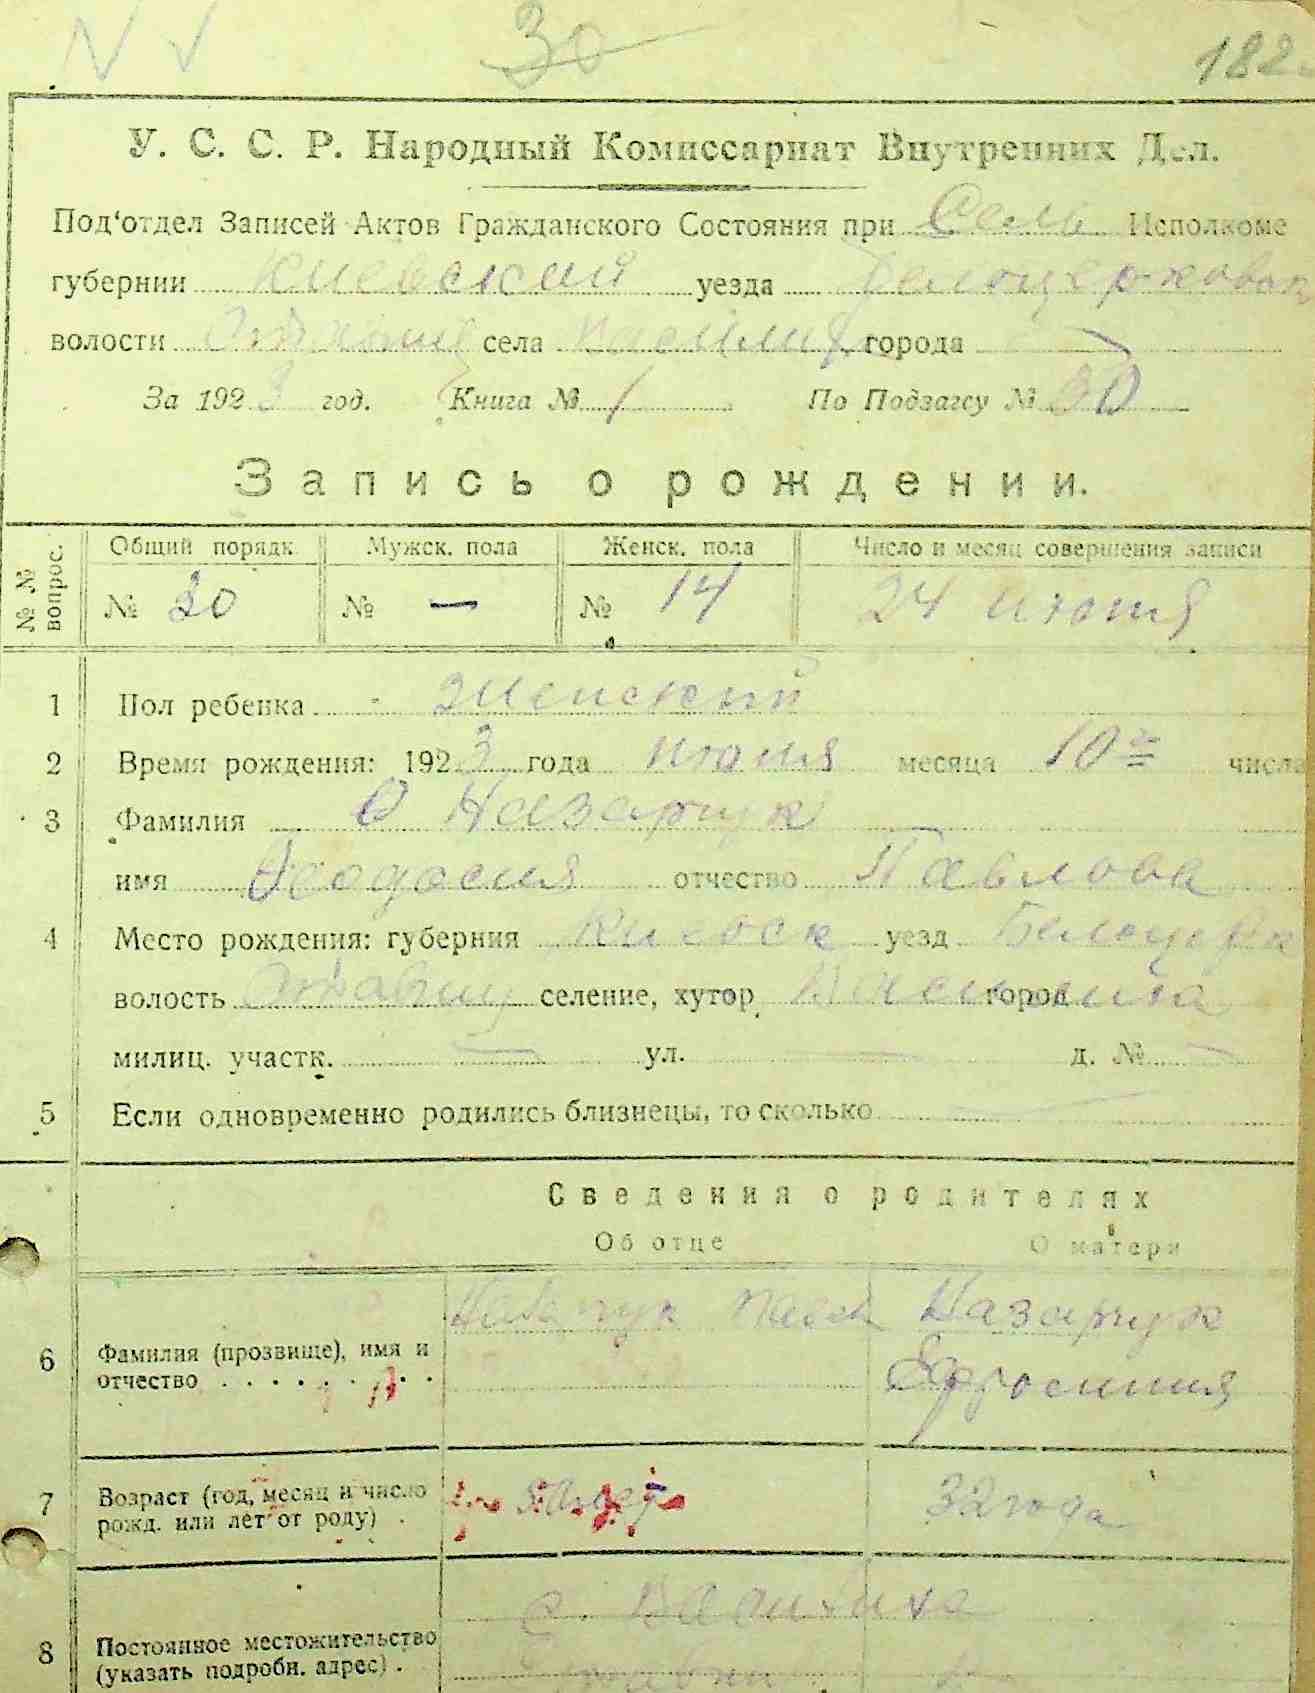 30
182
У. С. С. Р. Народный Комиссариат Внутренних Дел.
Под'отдел Записей Актов Гражданского Состояния при Сель Исполкоме
губернии Киевской уезда Белоцерковск
волости села города —
За 1923 год. Книга № 1 По Подзагсу № 30
Запись о рождении.
№ № вопрос.
Общий порядк. Мужск. пола Женск. пола Число и месяц совершения записи
№ 30 № — № 14 24 июня
1 Пол ребенка женский
2 Время рождения: 1923 года июня месяца 10 числа
3 Фамилия Назарчук
имя Феодосия отчество Павлова
4 Место рождения: губерния Киевск уезд Белоцерк
волость селение, хутор город
милиц. участк. — ул. — д. № —
5 Если одновременно родились близнецы, то сколько —
Сведения о родителях
Об отце О матери
6 Фамилия (прозвище), имя и отчество Назарчук Назарчук
Ефросиния
7 Возраст (год, месяц и число рожд. или лет от роду) лет 32 года
8 Постоянное местожительство (указать подробн. адрес) с.